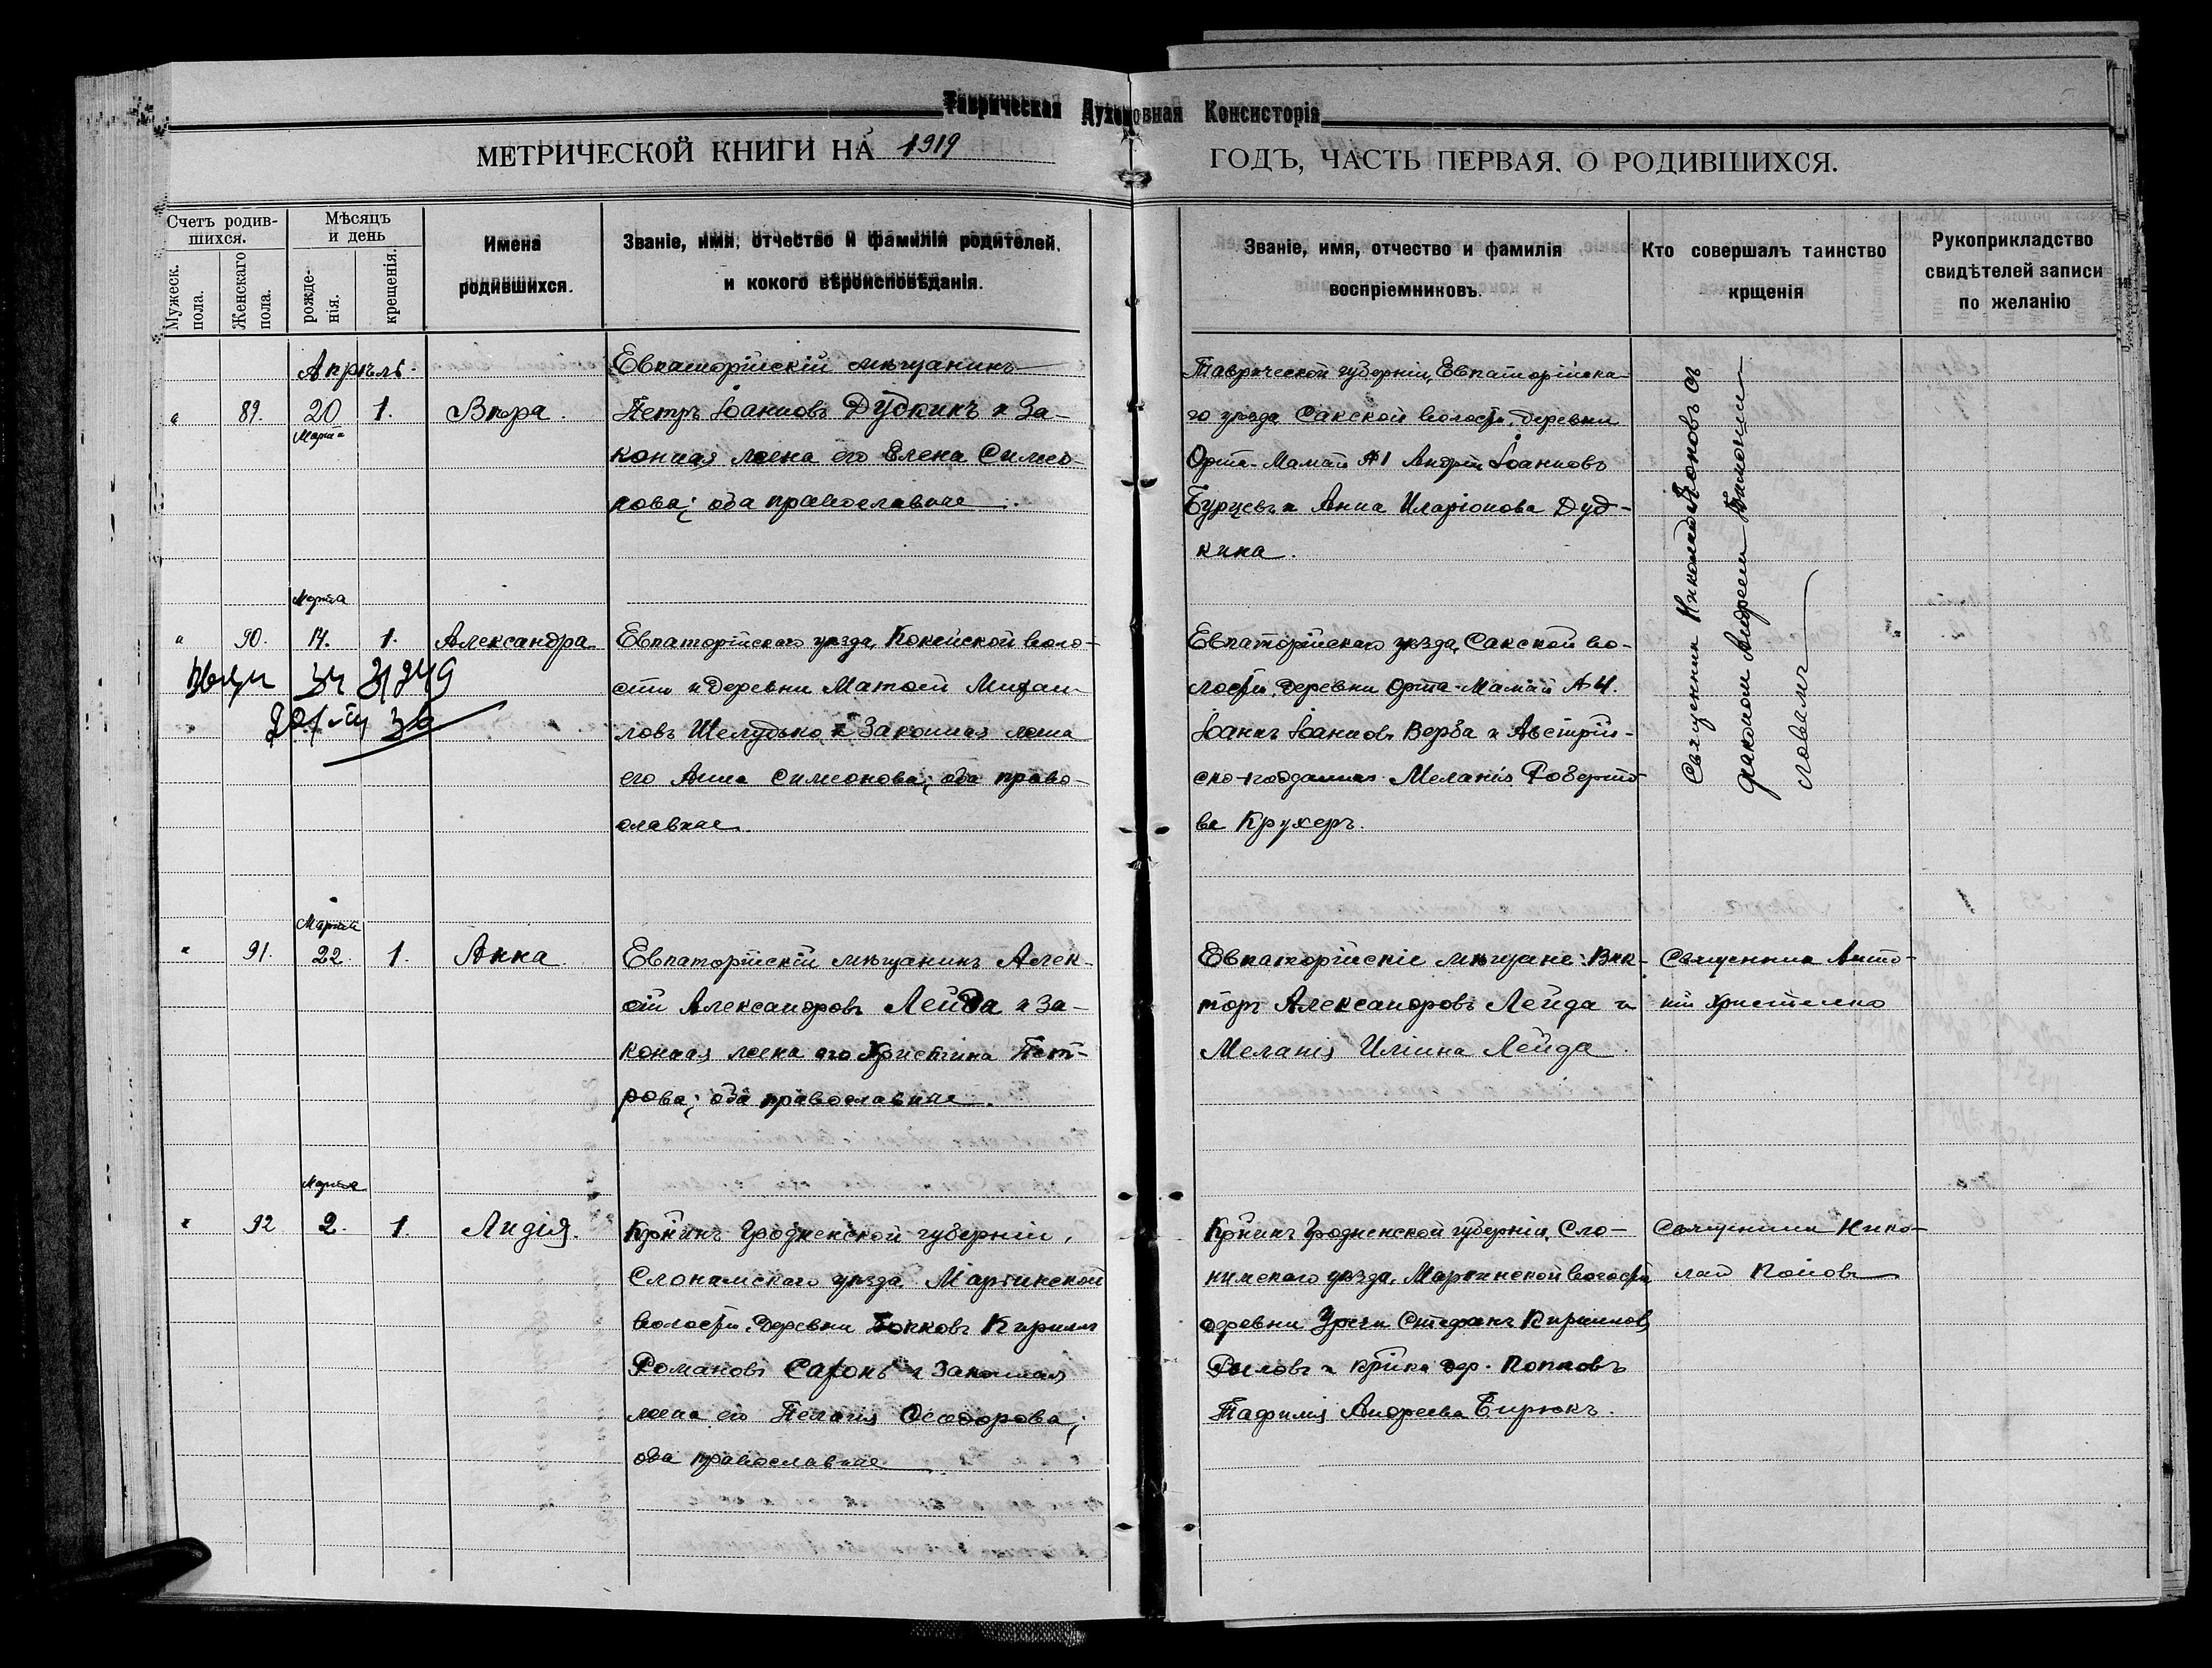 Таврическая Духовная Консисторія
МЕТРИЧЕСКОЙ КНИГИ НА 1919 ГОДЪ, ЧАСТЬ ПЕРВАЯ, О РОДИВШИХСЯ.
Счетъ родив-
шихся.
Мужеск. пола.
Женскаго пола.
Мѣсяцъ
и день
рожде-
нія.
крещенія.
Имена
родившихся.
Званіе, имя, отчество и фамилія родителей,
и кокого вѣроисповѣданія.
Званіе, имя, отчество и фамилія
воспріемниковъ.
Кто совершалъ таинство
крщенія
Рукоприкладство
свидѣтелей записи
по желанію
Апрѣль
89. 20 1. Вѣра.
Марта
Евпаторійскій мѣщанинъ
Петръ Іоанновъ Дудкинъ и за-
конная жена его Елена Симео-
нова; оба православные.
Таврической губерніи, Евпаторійска-
го уѣзда, Сакской волости, деревни
Орта-Мамай №1 Андрей Іоанновъ
Бурцевъ и Анна Иларіонова Дуд-
кина.
Священникъ Николай Поповъ съ
діакономъ Андреемъ
Марта
90. 14. 1. Александра
Евпаторійскаго уѣзда, Кокейской воло-
сти и деревни Матвей Михаи-
ловъ Шелудько и законная жена
его Анна Симеонова; оба право-
славные.
Евпаторійскаго уѣзда, Сакской во-
лости, деревни Орта-Мамай №4.
Іоаннъ Іоанновъ Верба и Австрій-
ско-подданная Меланія Роберто-
ва Крухеръ.
Марта
91. 22. 1. Анна.
Евпаторійскій мѣщанинъ Алек-
сій Александровъ Лейда и за-
конная жена его Христина Пет-
рова; оба православные.
Евпаторійскіе мѣщане: Вик-
торъ Александровъ Лейда и
Меланія Иліина Лейда.
Священникъ Анто-
ній
Марта
92 2. 1. Лидія.
Кр̃нинъ Гродненской губерніи,
Слонимскаго уѣзда, Мартинской
волости, деревни Попковъ Кириллъ
Романовъ Сафонъ и законная
жена его Пелагія Ѳеодорова;
оба православные
Кр̃нинъ Гродненской губерніи, Сло-
нимскаго уѣзда, Мартинской волости
деревни Стефанъ Кирилловъ
и кр̃нка дер. Попковъ
Андреева Бирюкъ.
Священникъ Нико-
лай Поповъ